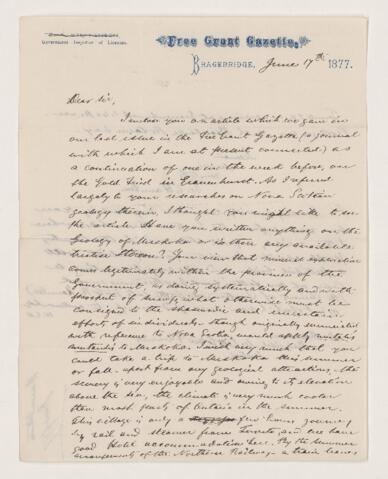 Government Inspector of Licenses.
Free Grant Gazette,
BRACEBRIDGE, June 17th 1877.
Dear Sir,
I enclose you an article which we gave in
our last issue in the Free Grant Gazette (a journal
with which I am at present connected) as
a continuation of one in the week before, on
the Gold Find in Draper. As I referred
largely to your researches on Nova Scotian
geology therein, I thought you might like to see
the article. Have you written anything on the
Geology of Muskoka or is there any available
treatise thereon? Your view that mineral exploration
comes legitimately within the province of the
Government, as doing systematically and with
what otherwise must be
consigned to the spasmodic and uncertain
efforts of individuals - though originally enunciated
with reference to Nova Scotia, would
to Muskoka. I wish very much that you
could take a trip to Muskoka this summer
or fall. Apart from any geological attractions, the
scenery is very enjoyable and owing to its elevation
above the sea, the climate is very much cooler
than most parts of Ontario in the summer.
This village is only a few hours journey
by rail and steamer from Toronto, and we have
good Hotel accommodation here. By the summer
arrangements of the Northern Railway a train leaves